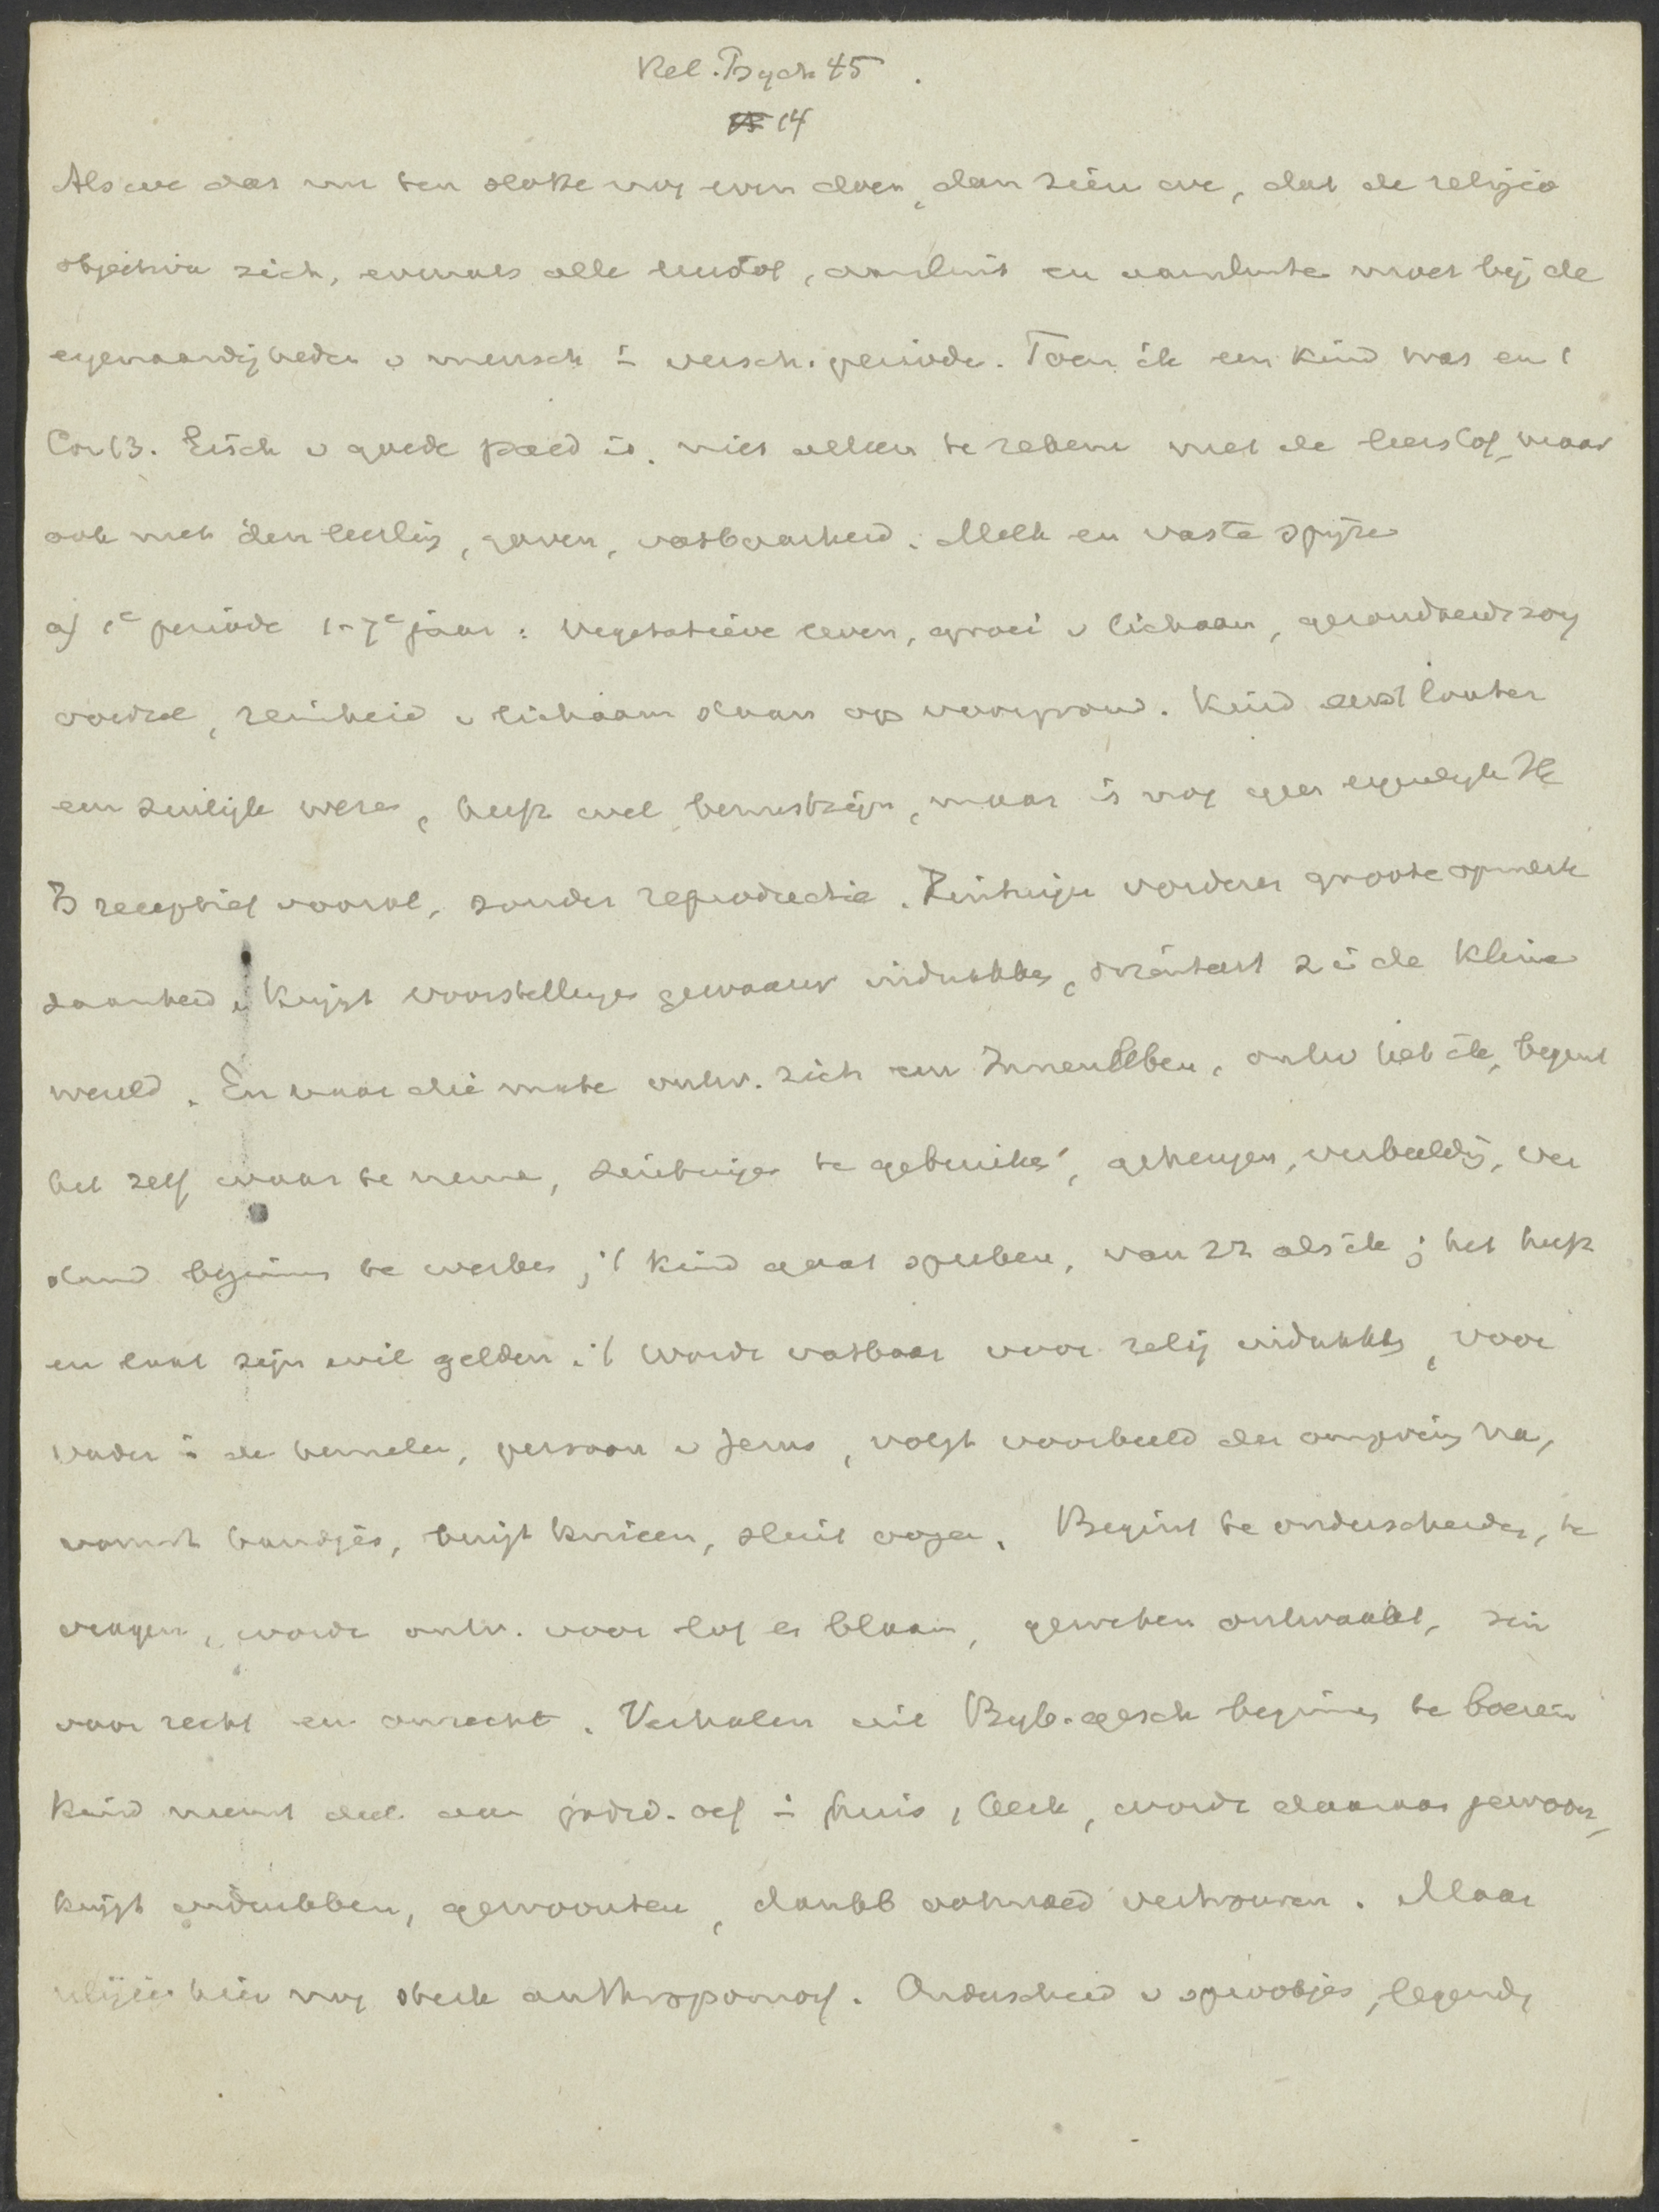 Rel. Psych 45.
14
Als we dat nu ten slotte nog even doen, dan zien we, dat de religio
objectiva zich, evenals alle leerstof, aansluit en aansluiten moet bij de
eigenaardigheden v mensch i versch. periode. Toen ik een kind was enz 1
Cor 13. Eisch v goede paed is, niet alleen te rekenen met de leerstof, maar
ook met den leerling, gaven, vatbaarheid. Melk en vaste spijze
a) 1e periode 1-7e jaar: vegetatieve leven, groei v lichaam, gezondheidszorg
voedsel, reinheid v lichaam staan op voorgrond. Kind eerst louter
een zinlijk wezen, heeft wel bewustzijn, maar is nog geen eigenlijk
Is receptief vooral, zonder reproductie. Zintuigen vorderen groote opmerk
zaamheid. Krijgt voorstellingen gewaarw indrukken, orienteert z i de kleine
wereld. En naar die mate ontw. zich een Innenleben, ontw het ik, begint
het zelf waar te nemen, zintuigen te gebruiken, geheugen, verbeeldg, ver
stand beginnen te werken; 't kind gaat spreken, van zz als ik; het heeft
en laat zijn wil gelden. 't Wordt vatbaar voor relig indrukken, voor
Vader i de hemelen, persoon v Jezus, volgt voorbeeld der omgeving na,
vouwt handjes, buigt knieen, sluit oogen. Begint te onderscheiden, te
vragen, wordt ontv. voor lof en blaam, geweten ontwaakt, zin
voor recht en onrecht. Verhalen uit Bijb. gesch beginnen te boeien
Kind neemt deel aan godsd. oef i huis, kerk, wordt daaraan gewoon,
krijgt indrukken, gewoonten, dankb ootmoed vertrouwen. Maar
religie hier nog sterk anthropomorf. Onderscheid v sprookjes, legenden